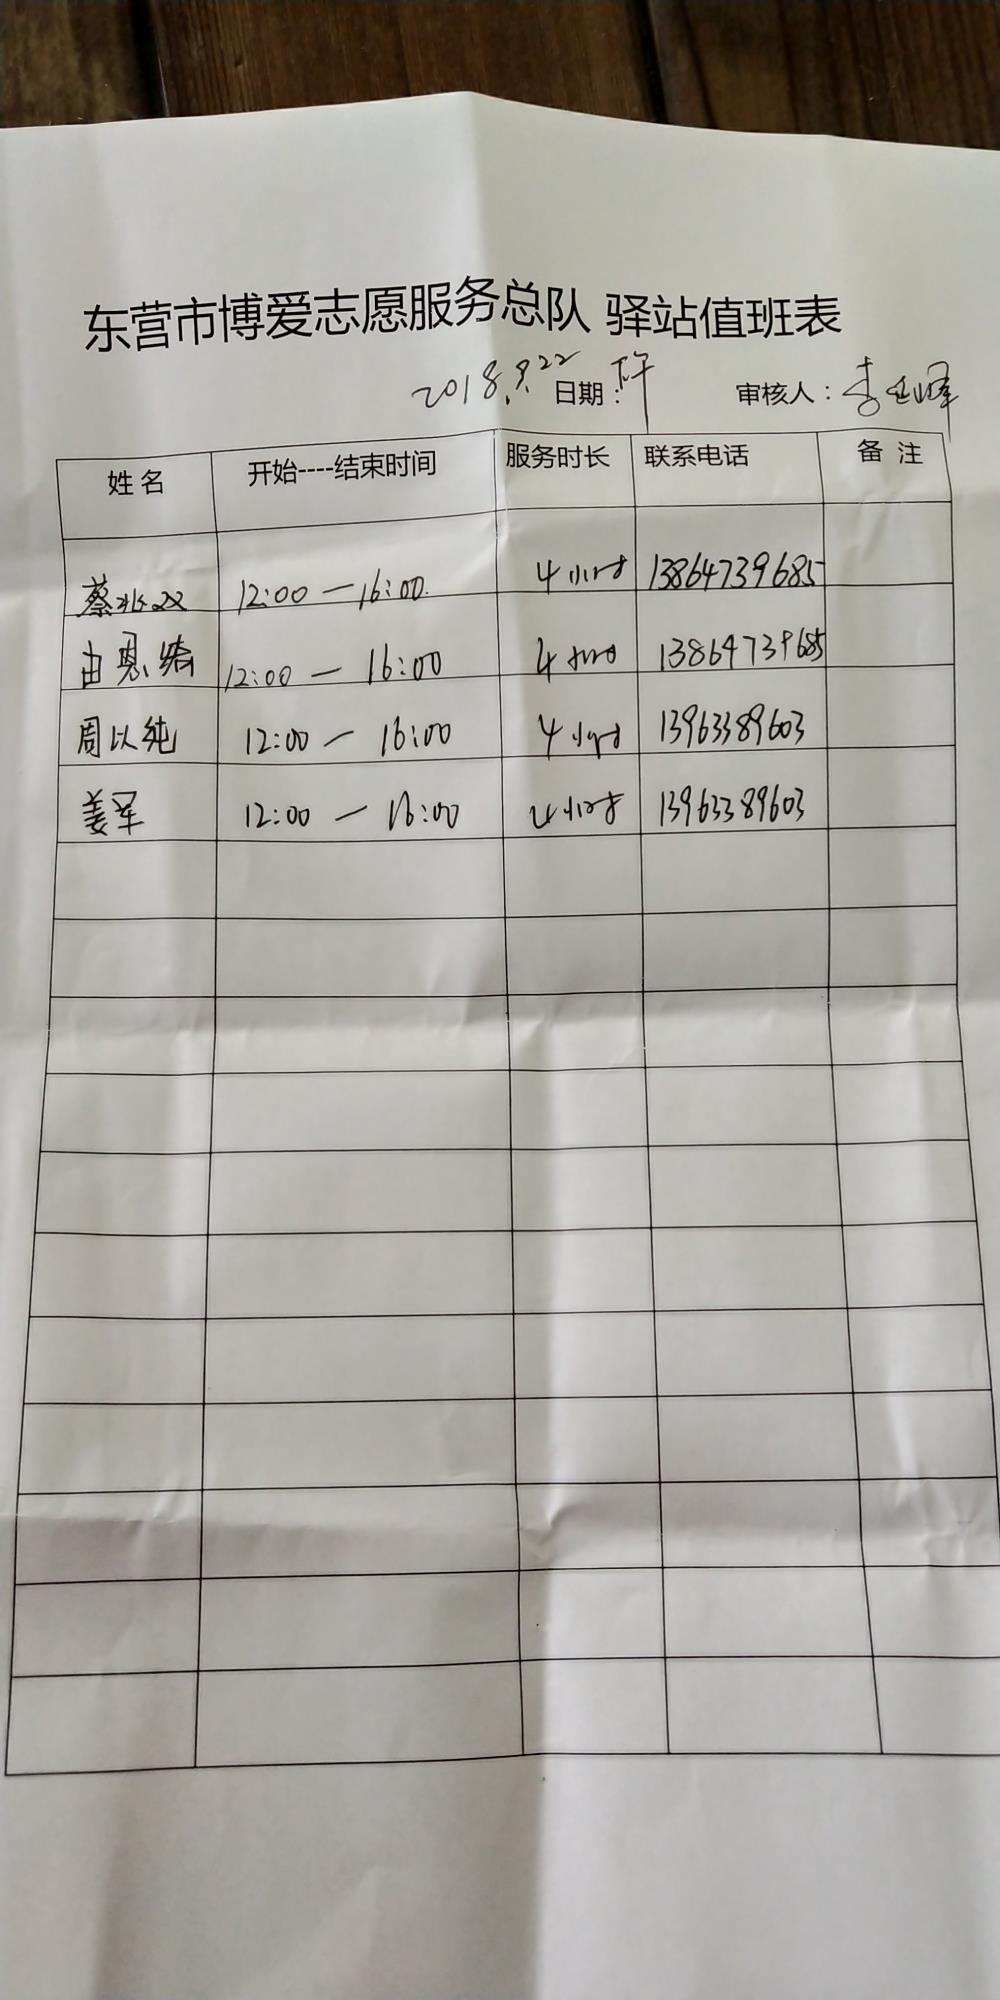 东营市博爱志愿服务总队 驿站值班表
2018.8.22 日期：下午 审核人：李
姓名 开始----结束时间 服务时长 联系电话 备 注
蔡兆双 12:00 — 16:00. 4小时 13864739685
由恩绮 12:00 — 16:00 4小时 13864739685
周以纯 12:00 — 16:00 4小时 13963389603
姜军 12:00 — 16:00 4小时 13963389603